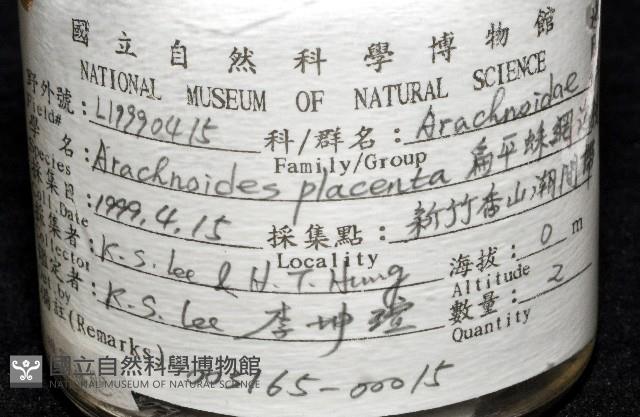 國立自然科學博物館
NATIONAL MUSEUM OF NATURAL SCIENCE
野外號：L19990415 科/群名：Arachnoidae
Field# Family/Group
學 名：Arachnoides placenta 扁平蛛網
Species
採集日：1999.4.15 採集點：新竹香山潮間帶
Coll Date Locality
採集者：K.S. Lee & H.T. Hung 海拔：0 m
Collector Altitude
定者：K.S. Lee 李坤瑄 數量：2
by Quantity
註(Remarks)
165-00015
國立自然科學博物館
NATIONAL MUSEUM OF NATURAL SCIENCE